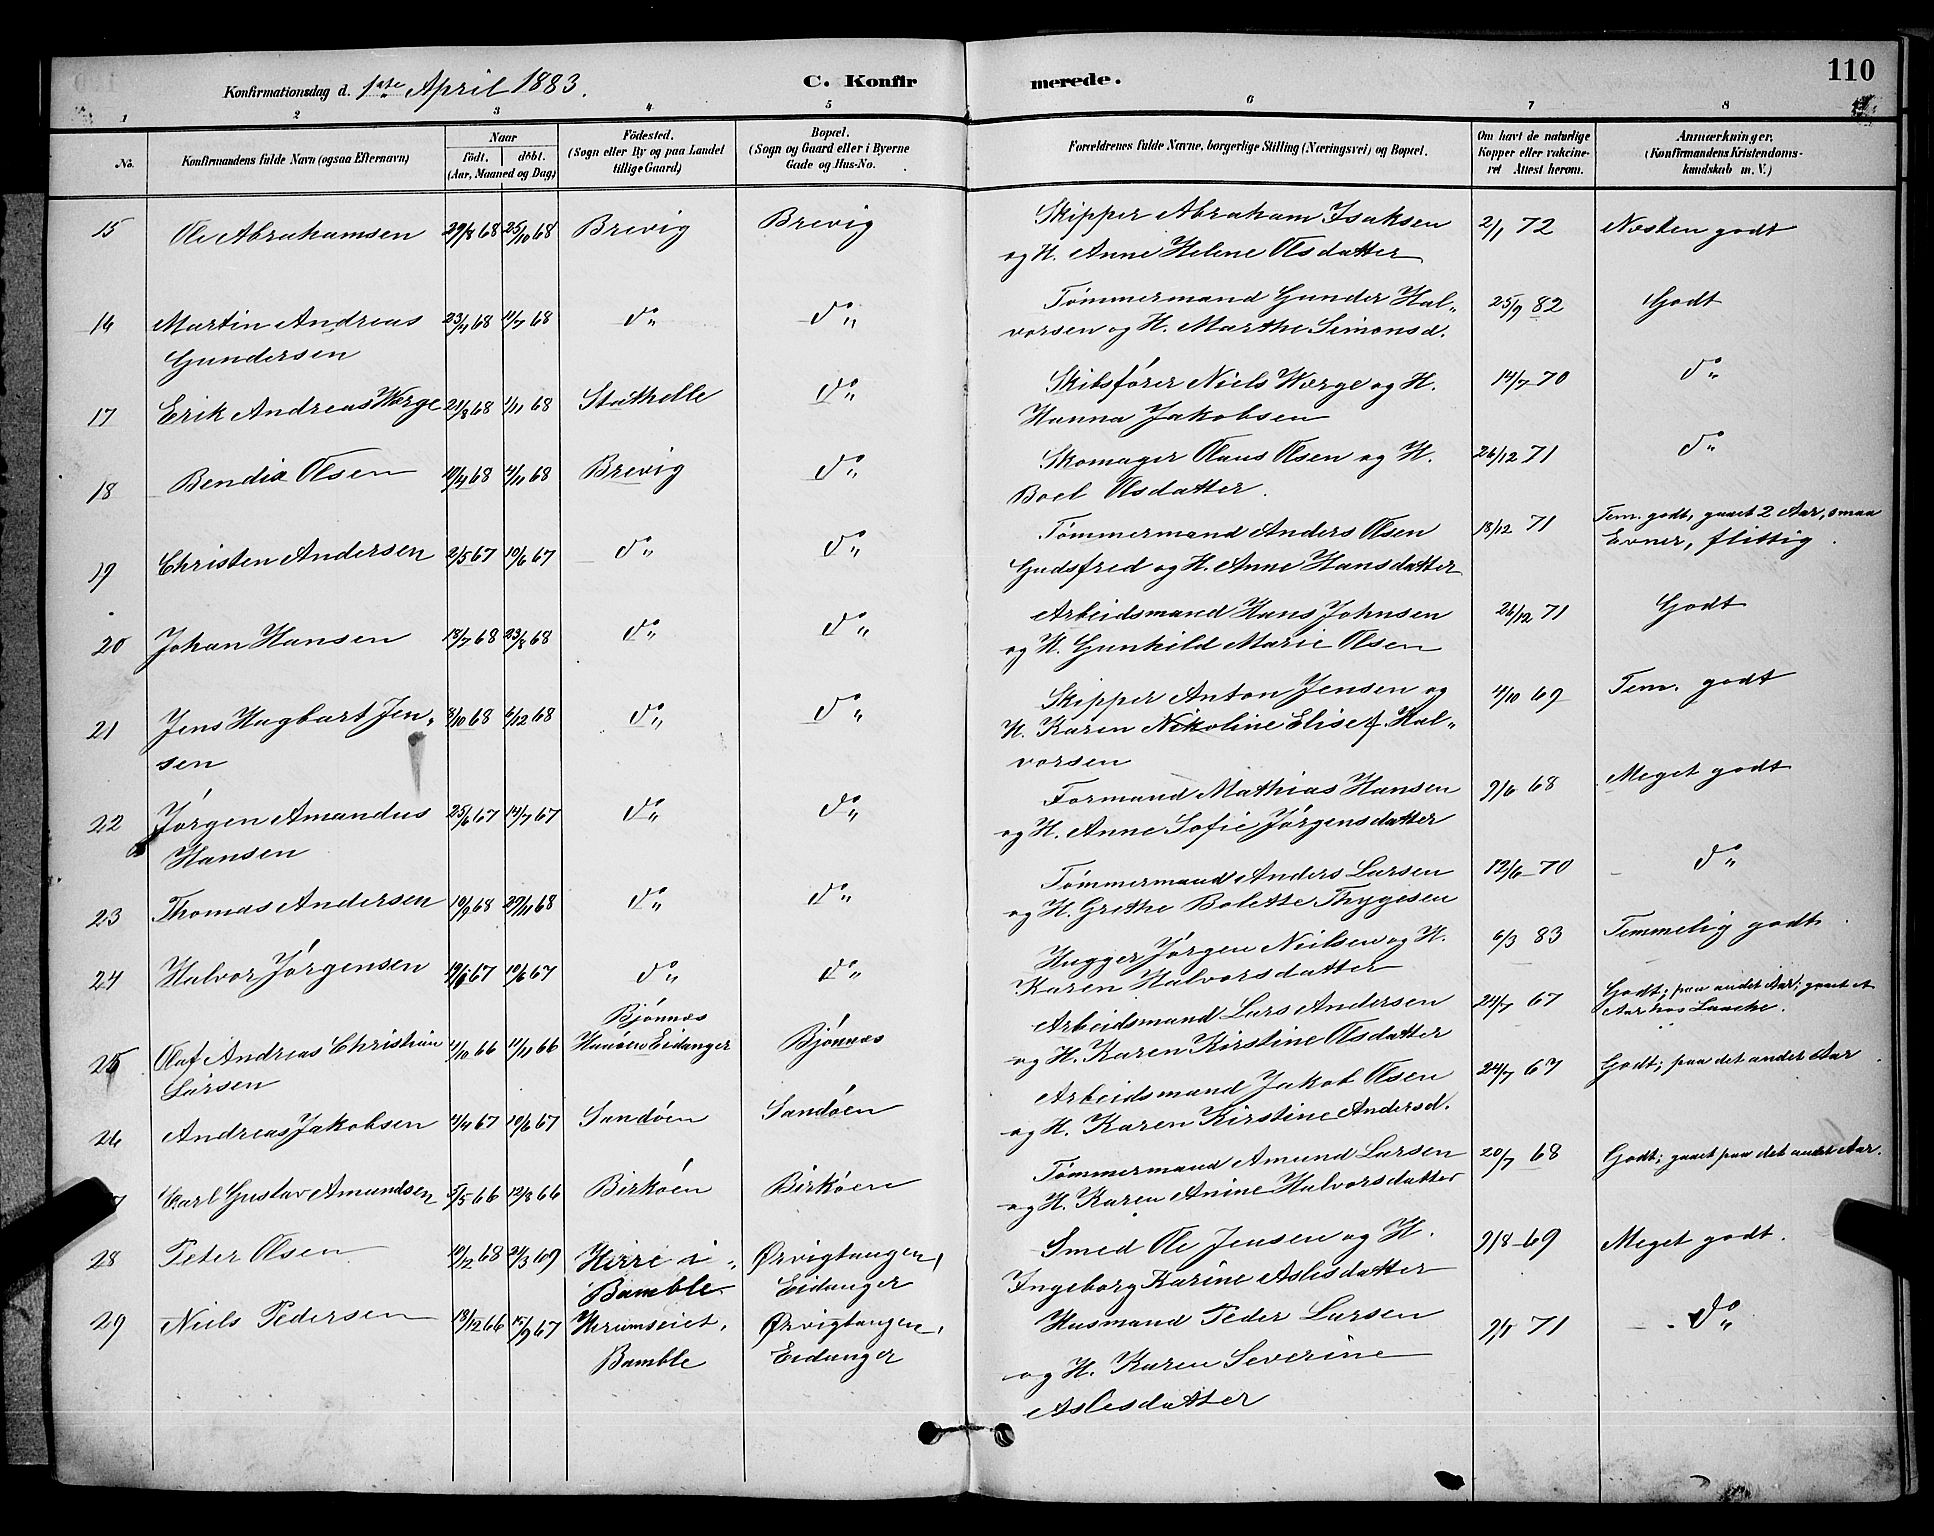 110
Konfirmationsdag d. 1ste April 1883. C. Konfir merede.
1 2 3 4 5 6 7 8
No. Konfirmandens fulde Navn (ogsaa Efternavn) Naar födt. döbt. (Aar, Maaned og Dag) Födested. (Sogn eller By og paa Landet tillige Gaard) Bopæl. (Sogn og Gaard eller i Byerne Gade og Hus-No. Forældrenes fulde Navne, borgerlige Stilling (Næringsvei) og Bopæl. Om havt de naturlige Kopper eller vakcineret Attest herom. Anmærkninger. (Konfirmandens Kristendomskundskab m. V.)
15 Ole Abrahamsen 29/8 68 25/10 68 Brevig Brevig Skipper Abraham Isaksen 2/1 72 Næsten godt
og H. Anne Helene Olsdatter
16 Martin Andreas 68 11/7 68 do do Tømmermand Gunder Hal- 25/9 82 Godt
Gundersen vorsen og H. Marthe Simonsd.
17 Erik Andreas Werge 21/8 68 1/11 68 Stathelle do Skibsfører Niels Werge og H. 14/7 70 do
Hanna Jakobsen
18 Bendix Olsen 68 68 Brevig do Skomager Olaus Olsen og H. 26/12 71 do
Boel Olsdatter.
19 Christen Andersen 2/5 67 10/6 67 do do Tømmermand Anders Olsen 18/12 71 Tem. godt, gaaet 2 Aar, smaa
Gudsfred og H. Anne Hansdatter Evner, flittig.
20 Johan Hansen 18/7 68 23/8 68 do do Arbeidsmand Hans Johnsen 26/12 71 Godt
og H. Gunhild Marie Olsen
21 Jens Hagbart Jen- 8/10 68 6/12 68 do do Skipper Anton Jensen og 4/10 69 Tem. godt
sen H. Karen Nikoline Elise f. Hal-
vorsen
22 Jørgen Amandus 25/6 67 14/7 67 do do Formand Mathias Hansen 9/6 68 Meget godt
Hansen og H. Anne Sofie Jørgensdatter
23 Thomas Andersen 10/9 68 68 do do Tømmermand Anders Larsen 12/6 70 do
og H. Grethe Bolette Thygesen
24 Halvor Jørgensen 67 10/6 67 do do Hugger Jørgen Neilsen og H. 6/3 83 Temmelig godt
Karen Halvorsdatter
25 Olaf Andreas Christian 66 11/11 66 Bjønnæs Eidanger Bjønnæs Arbeidsmand Lars Andersen 24/7 67 Godt; paa andet Aar; gaaet et
Larsen og H. Karen Kirstine Olsdatter Aar hos Laache.
26 Andreas Jakobsen 4/4 67 10/6 67 Sandøen Sandøen Arbeidsmand Jakob Olsen 24/7 67 Godt; paa det andet Aar
og H. Karen Kirstine Andersd.
Carl Gustav Amundsen 5/5 66 12/8 66 Birkøen Birkøen Tømmermand Amund Larsen 20/7 68 Godt; gaaet paa det andet Aar.
og H. Karen Anine Halvorsdatter
28 Peter Olsen 10/12 68 21/3 69 Herre i Ørvigtangen, Smed Ole Jensen og H. 9/8 69 Meget godt.
Bamble Eidanger Ingeborg Karine Aslesdatter
29 Niels Pedersen 13/12 66 15/9 67 Ørvigtangen, Husmand Peder Larsen 71 do
Bamble Eidanger og H. Karen Severine
Aslesdatter